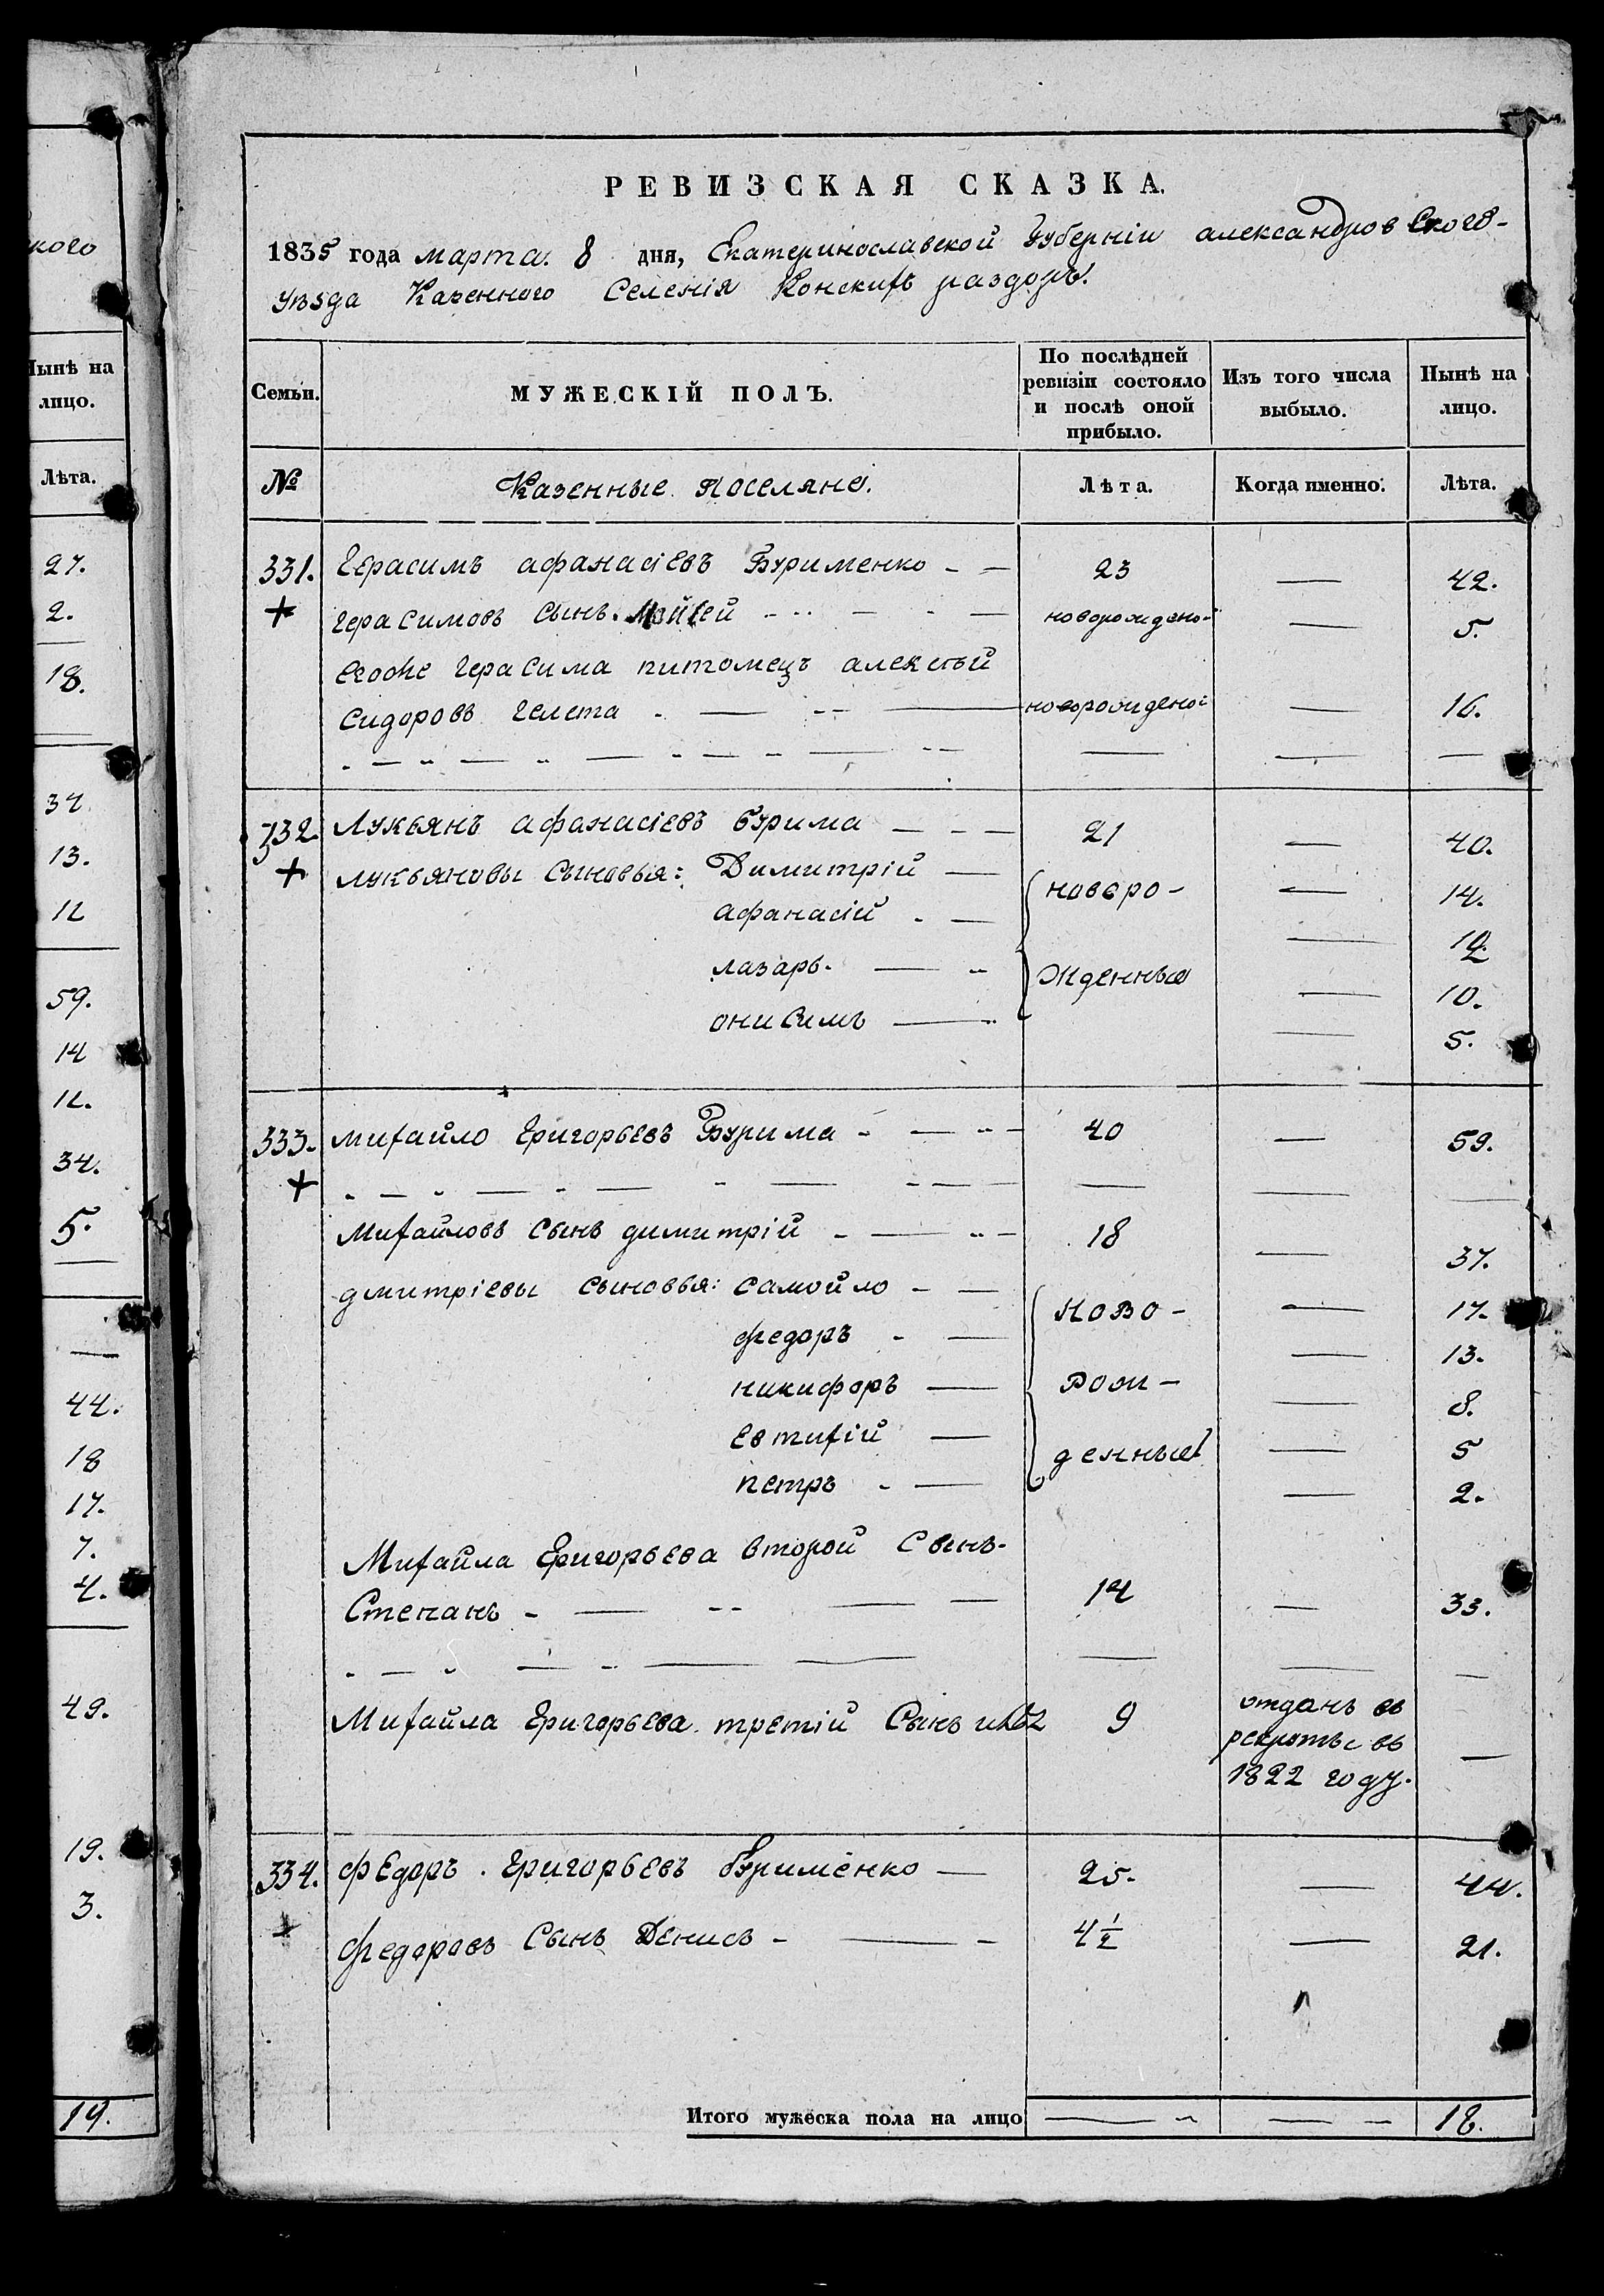 кого
Нынѣ на
лицо.
Лѣта.
27.
2.
18.
34
13.
12
59.
14
12.
34.
5.
44.
18
17.
7.
4.
49.
19.
3.
19.
РЕВИЗСКАЯ СКАЗКА.
1835 года марта. 8 дня, Екатеринославской Губерніи александров Ского-
уѣзда Казенного Селенія Конскихъ раздоръ.
Семьи. МУЖЕСКІЙ ПОЛЪ. По послѣдней ревизіи состояло и послѣ оной прибыло. Изъ того числа выбыло. Нынѣ на лицо.
№ Казенные поселяне. Лѣта. Когда именно. Лѣта.
331. Герасимъ афанасіевъ Бурименко - — 23 — 42.
+ герасимовъ сынъ. — новорожденой — 5.
егоже герасима питомецъ алексѣй
сидоровъ гелета - — новорожденой — 16.
332 Лукьянъ афанасіевъ бурима — - — 21 — 40.
+ лукьяновы сыновья: Димитрій — новоро- — 14.
афанасій - — — 12
лазарь. — жденныя — 10.
онисимъ — — 5.
333. михайло Григорьевъ Бурима - — 40 — 59.
+
Михайловъ сынъ димитрій - — 18 — 37.
дмитріевы сыновья: самойло - — Ново- — 17.
федоръ - — — 13.
никифоръ — рож- — 8.
евтихій — денныя — 5
петръ - — — 2.
Михайла Григорьева второй сынъ-
Степанъ - — 14 — 33.
Михайла Григорьева третій Сынъ 9 отданъ въ
рекруты въ —
1822 году.
334. федоръ. Григорьевъ бурименко — 25. — 44.
+ федоровъ Сынъ Денисъ - — 4½ — 21.
Итого мужеска пола на лицо — — 18.